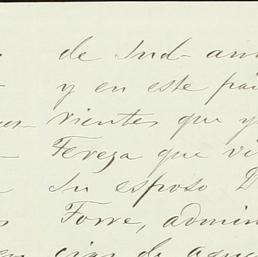 de Sud-am
y en este pai
vientes que y
Tereza que vi
Su esposo D
Torre, admin
cias de aque